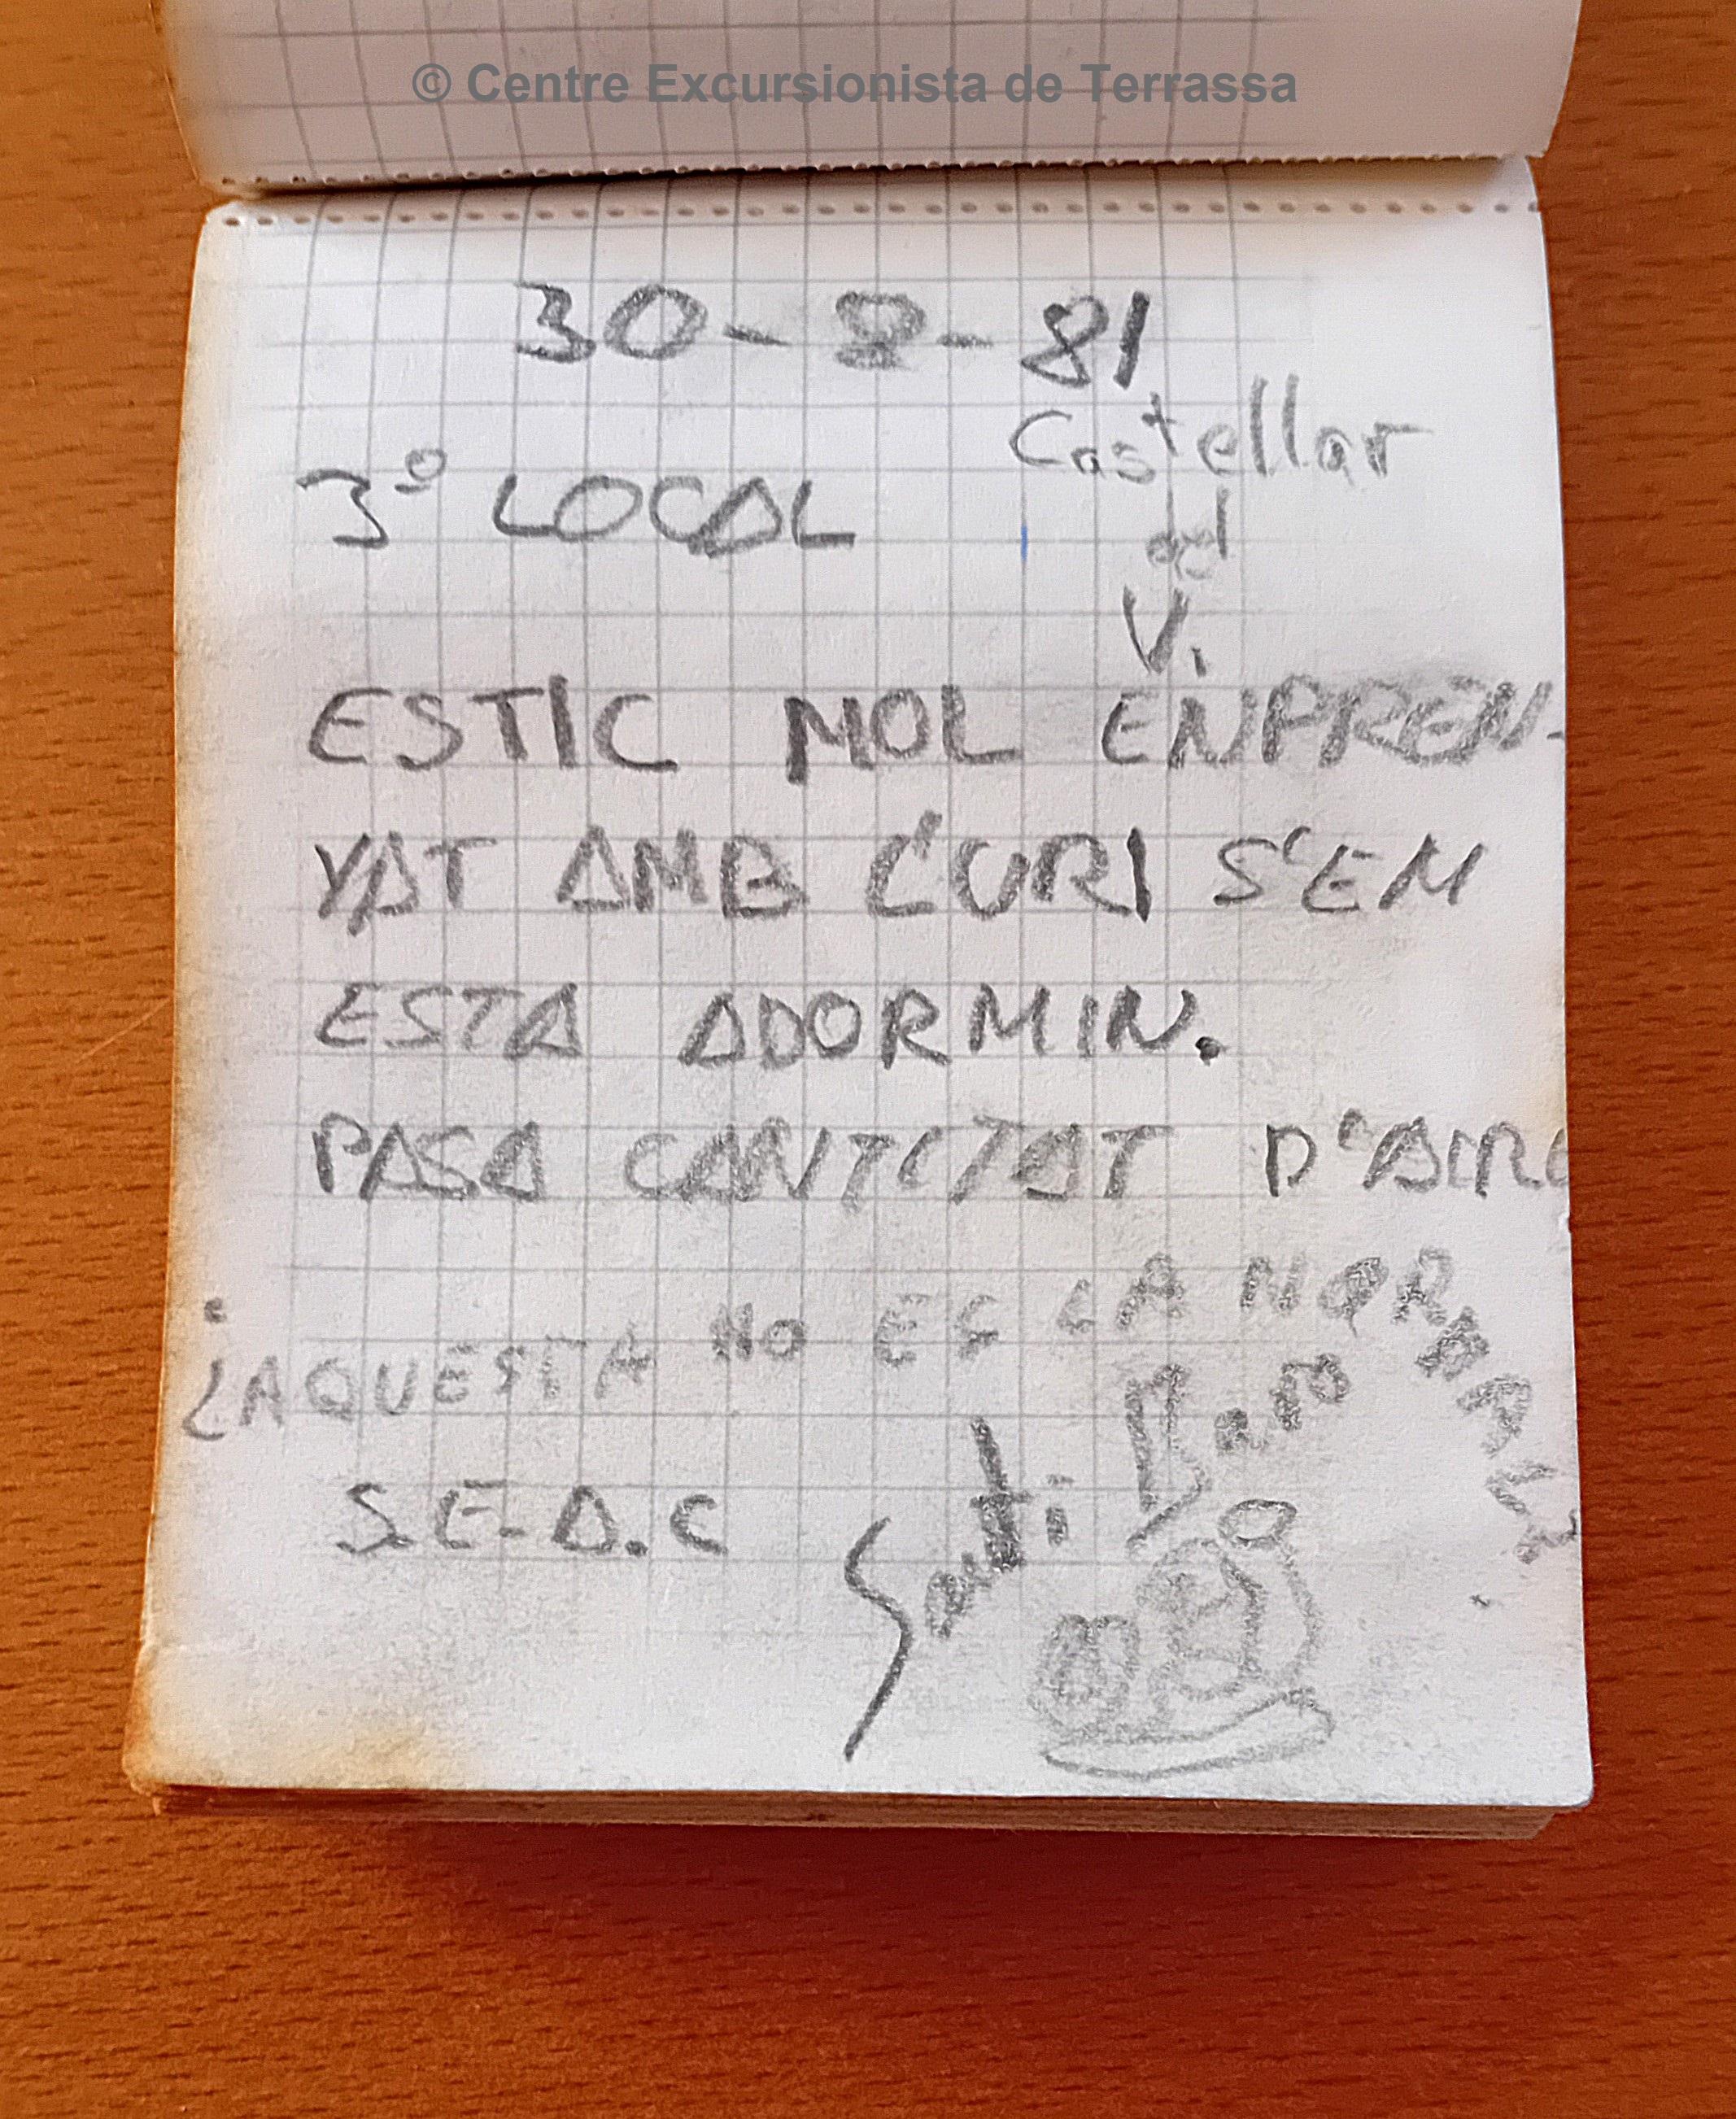 © Centre Excursionista de Terrassa
30-8-81
Castellar
del
V.
3º LOCAL
ESTIC MOL ENPREN-
YAT AMB L'URI S'EM
ESTA ADORMIN.
PASA CANTITAT D'AIRE
¿AQUESTA NO ES LA NORD
S.E-A.C
Santi